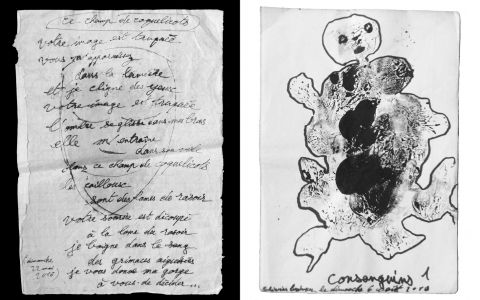 ce champ de coquelicots
votre image est trupaté
vous m'apparaissez
dans la lumière
et je cligne des yeux
votre image est trupatée
l'ombre se glisse dans mes bras
elle m'entraîne
dans son
dans ce champ de coquelicots
les cailloux
sont des lames de rasoir
votre sourire est découpé
à la lame du rasoir
je baigne dans le sang
des grimaces aiguisées
je vous donne ma gorge
à vous de décider...
dimanche
22 mai
2010
Consanguins 1
le dimanche 6 2010